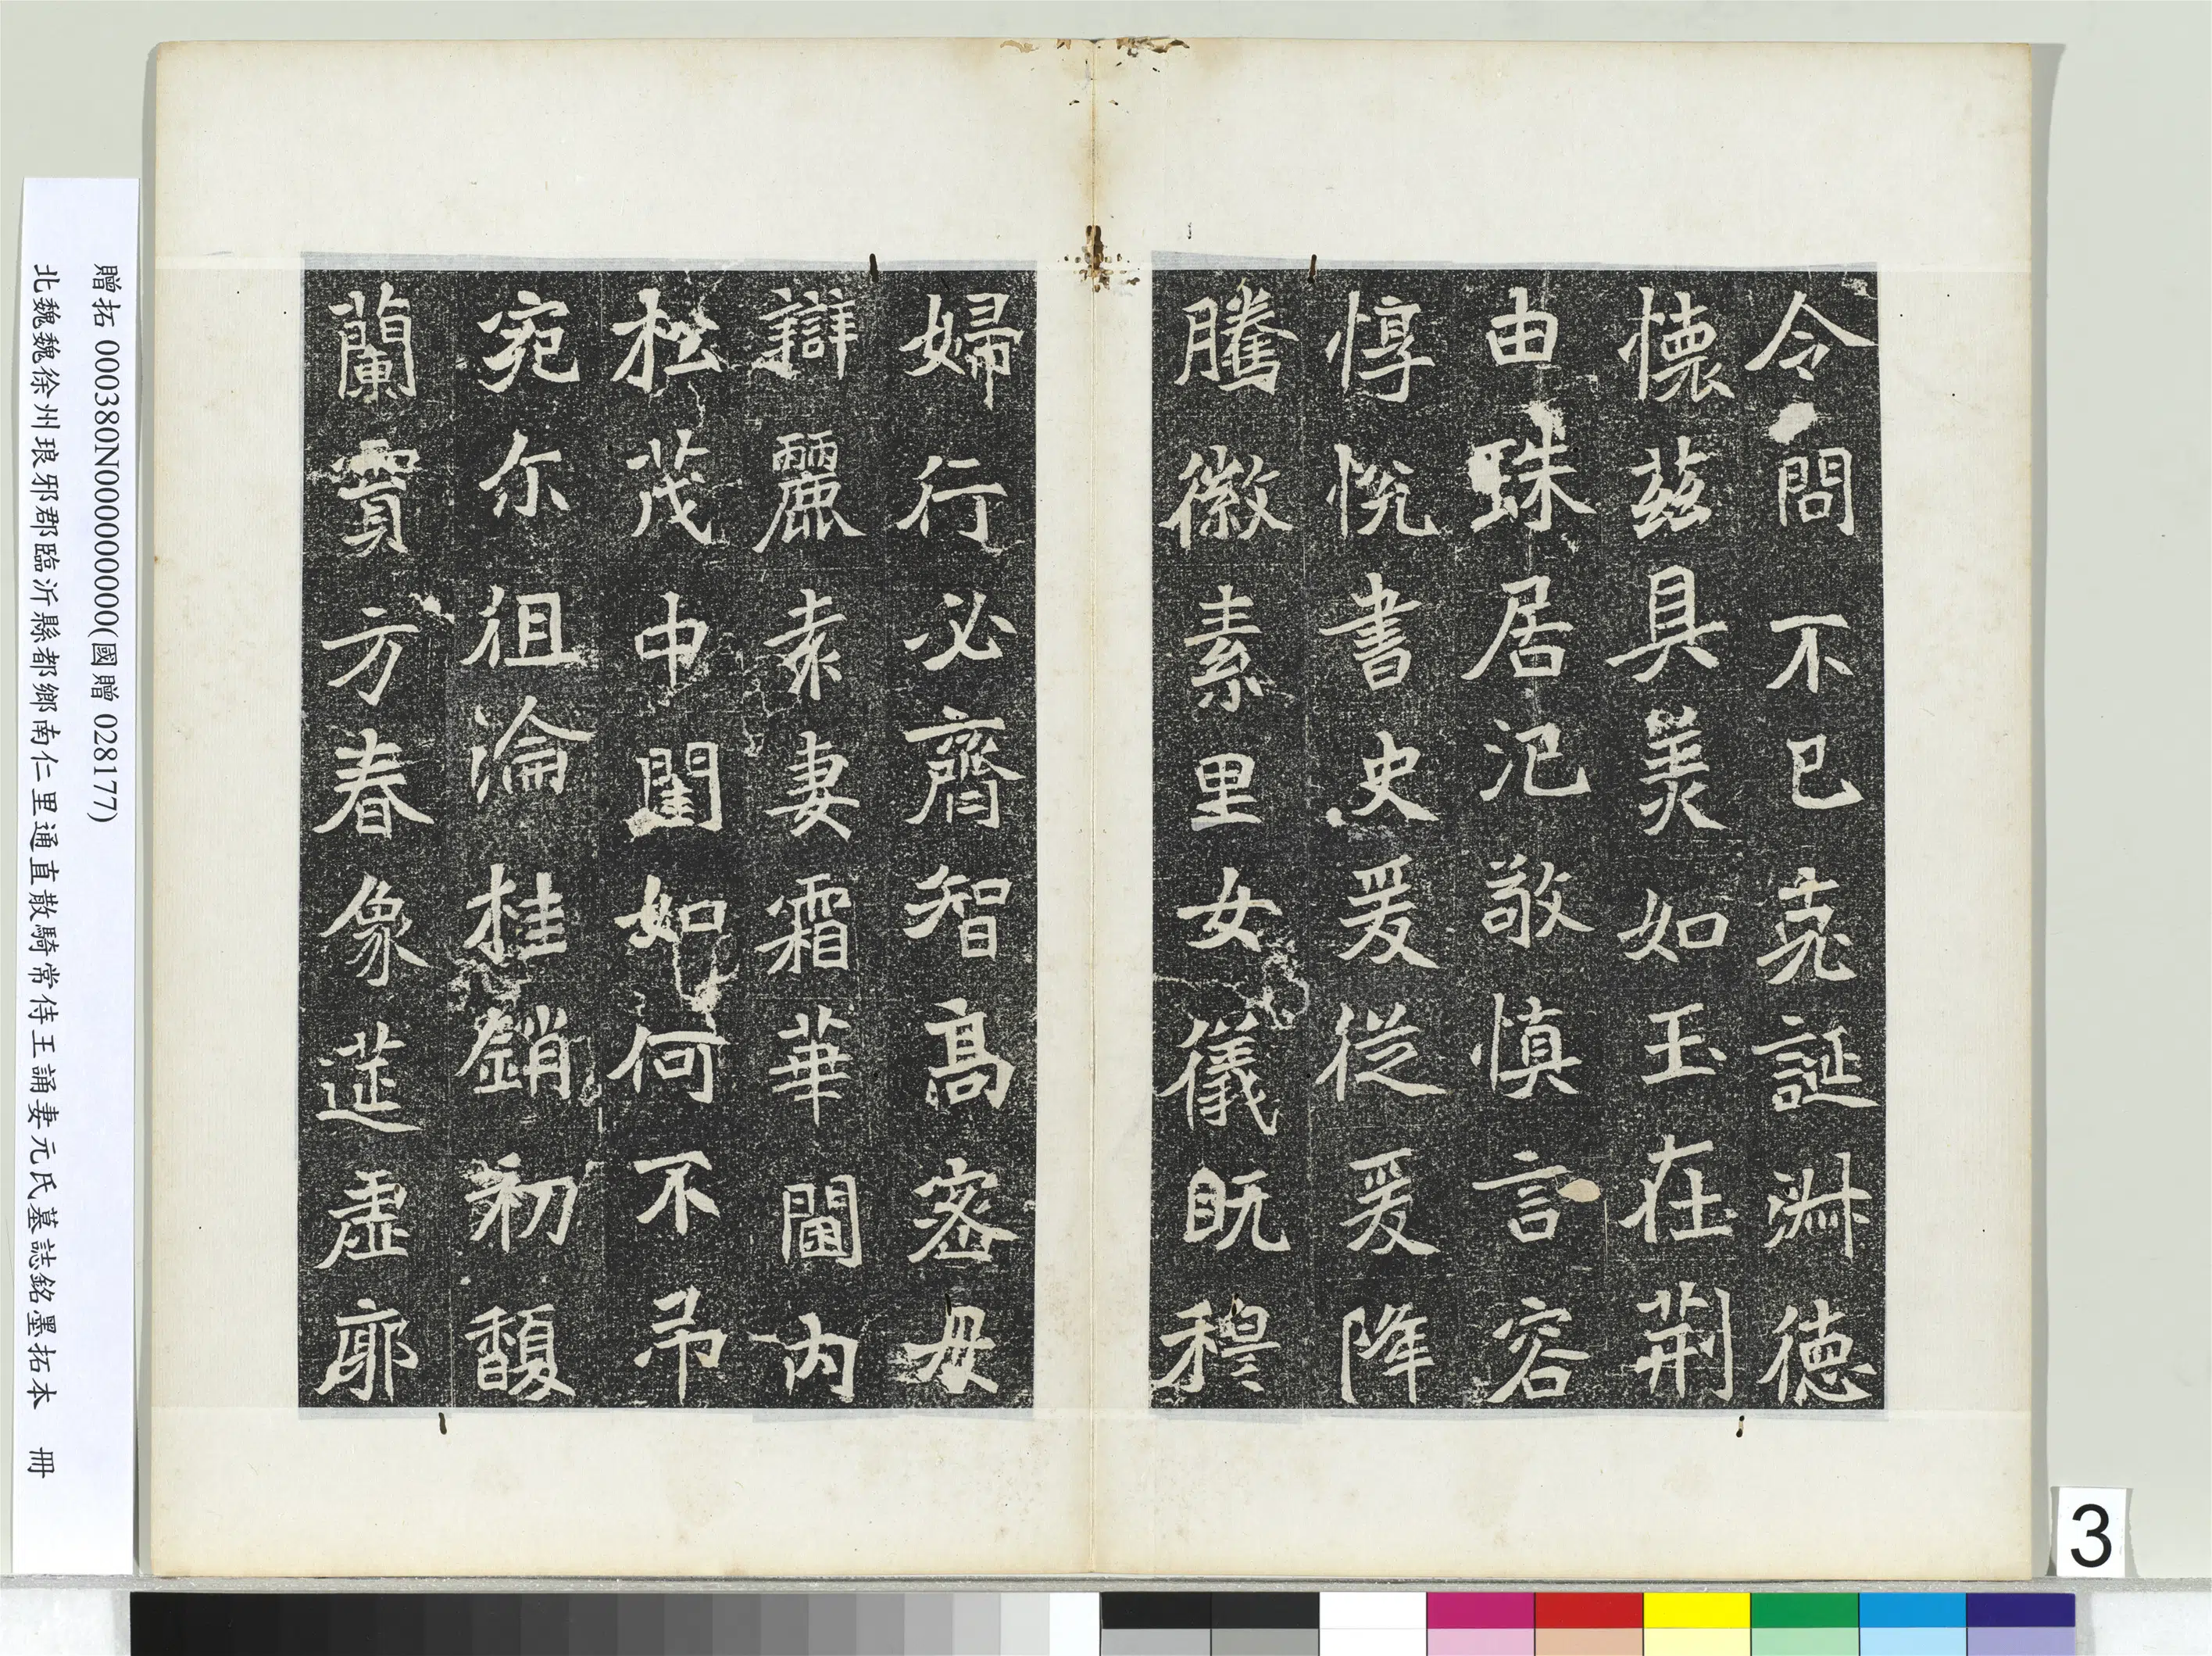 令問不已克誕淵德
懷兹具美如玉在荊
由珠居氾敬慎言容
惇悅書史爰從爰降
騰徽素里女儀既穆
婦行必齊智高密母
辯麗袁妻霜華閫内
松茂中閨如何不弔
宛尒徂淪桂銷初馥
蘭賨方春象莚虛廓
贈拓 000380N000000000(國贈 028177)
北魏魏徐州琅邪郡臨沂縣都鄉南仁里通直散騎常侍王誦妻元氏墓誌銘墨拓本 冊
3